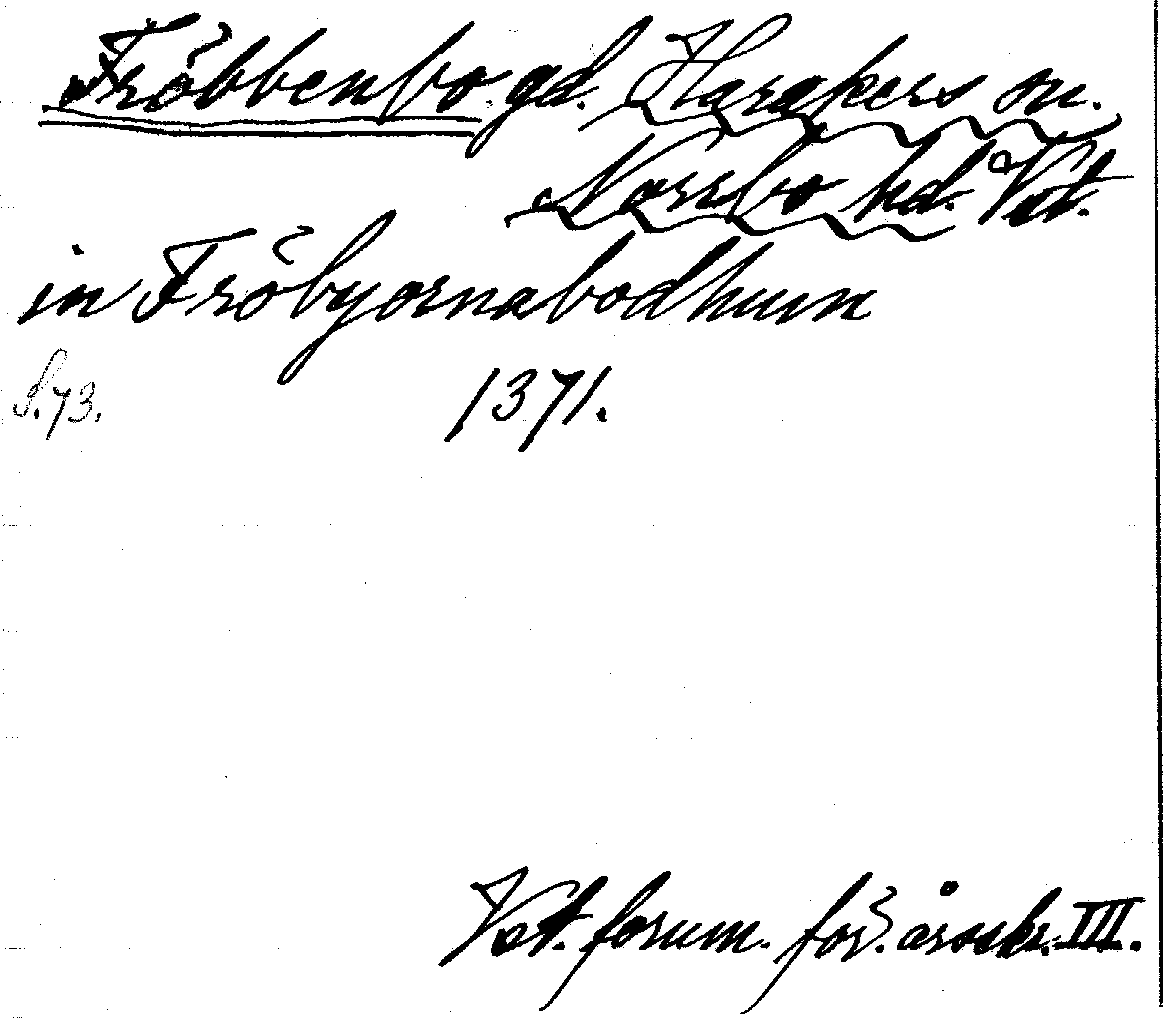 Fröbbenbo gd. Harakers sn.
Norrbo hd. Vstm.
in Fröbyornabodhum
S. 73. 1371.
Vst. fornm. för. årsskr. III.